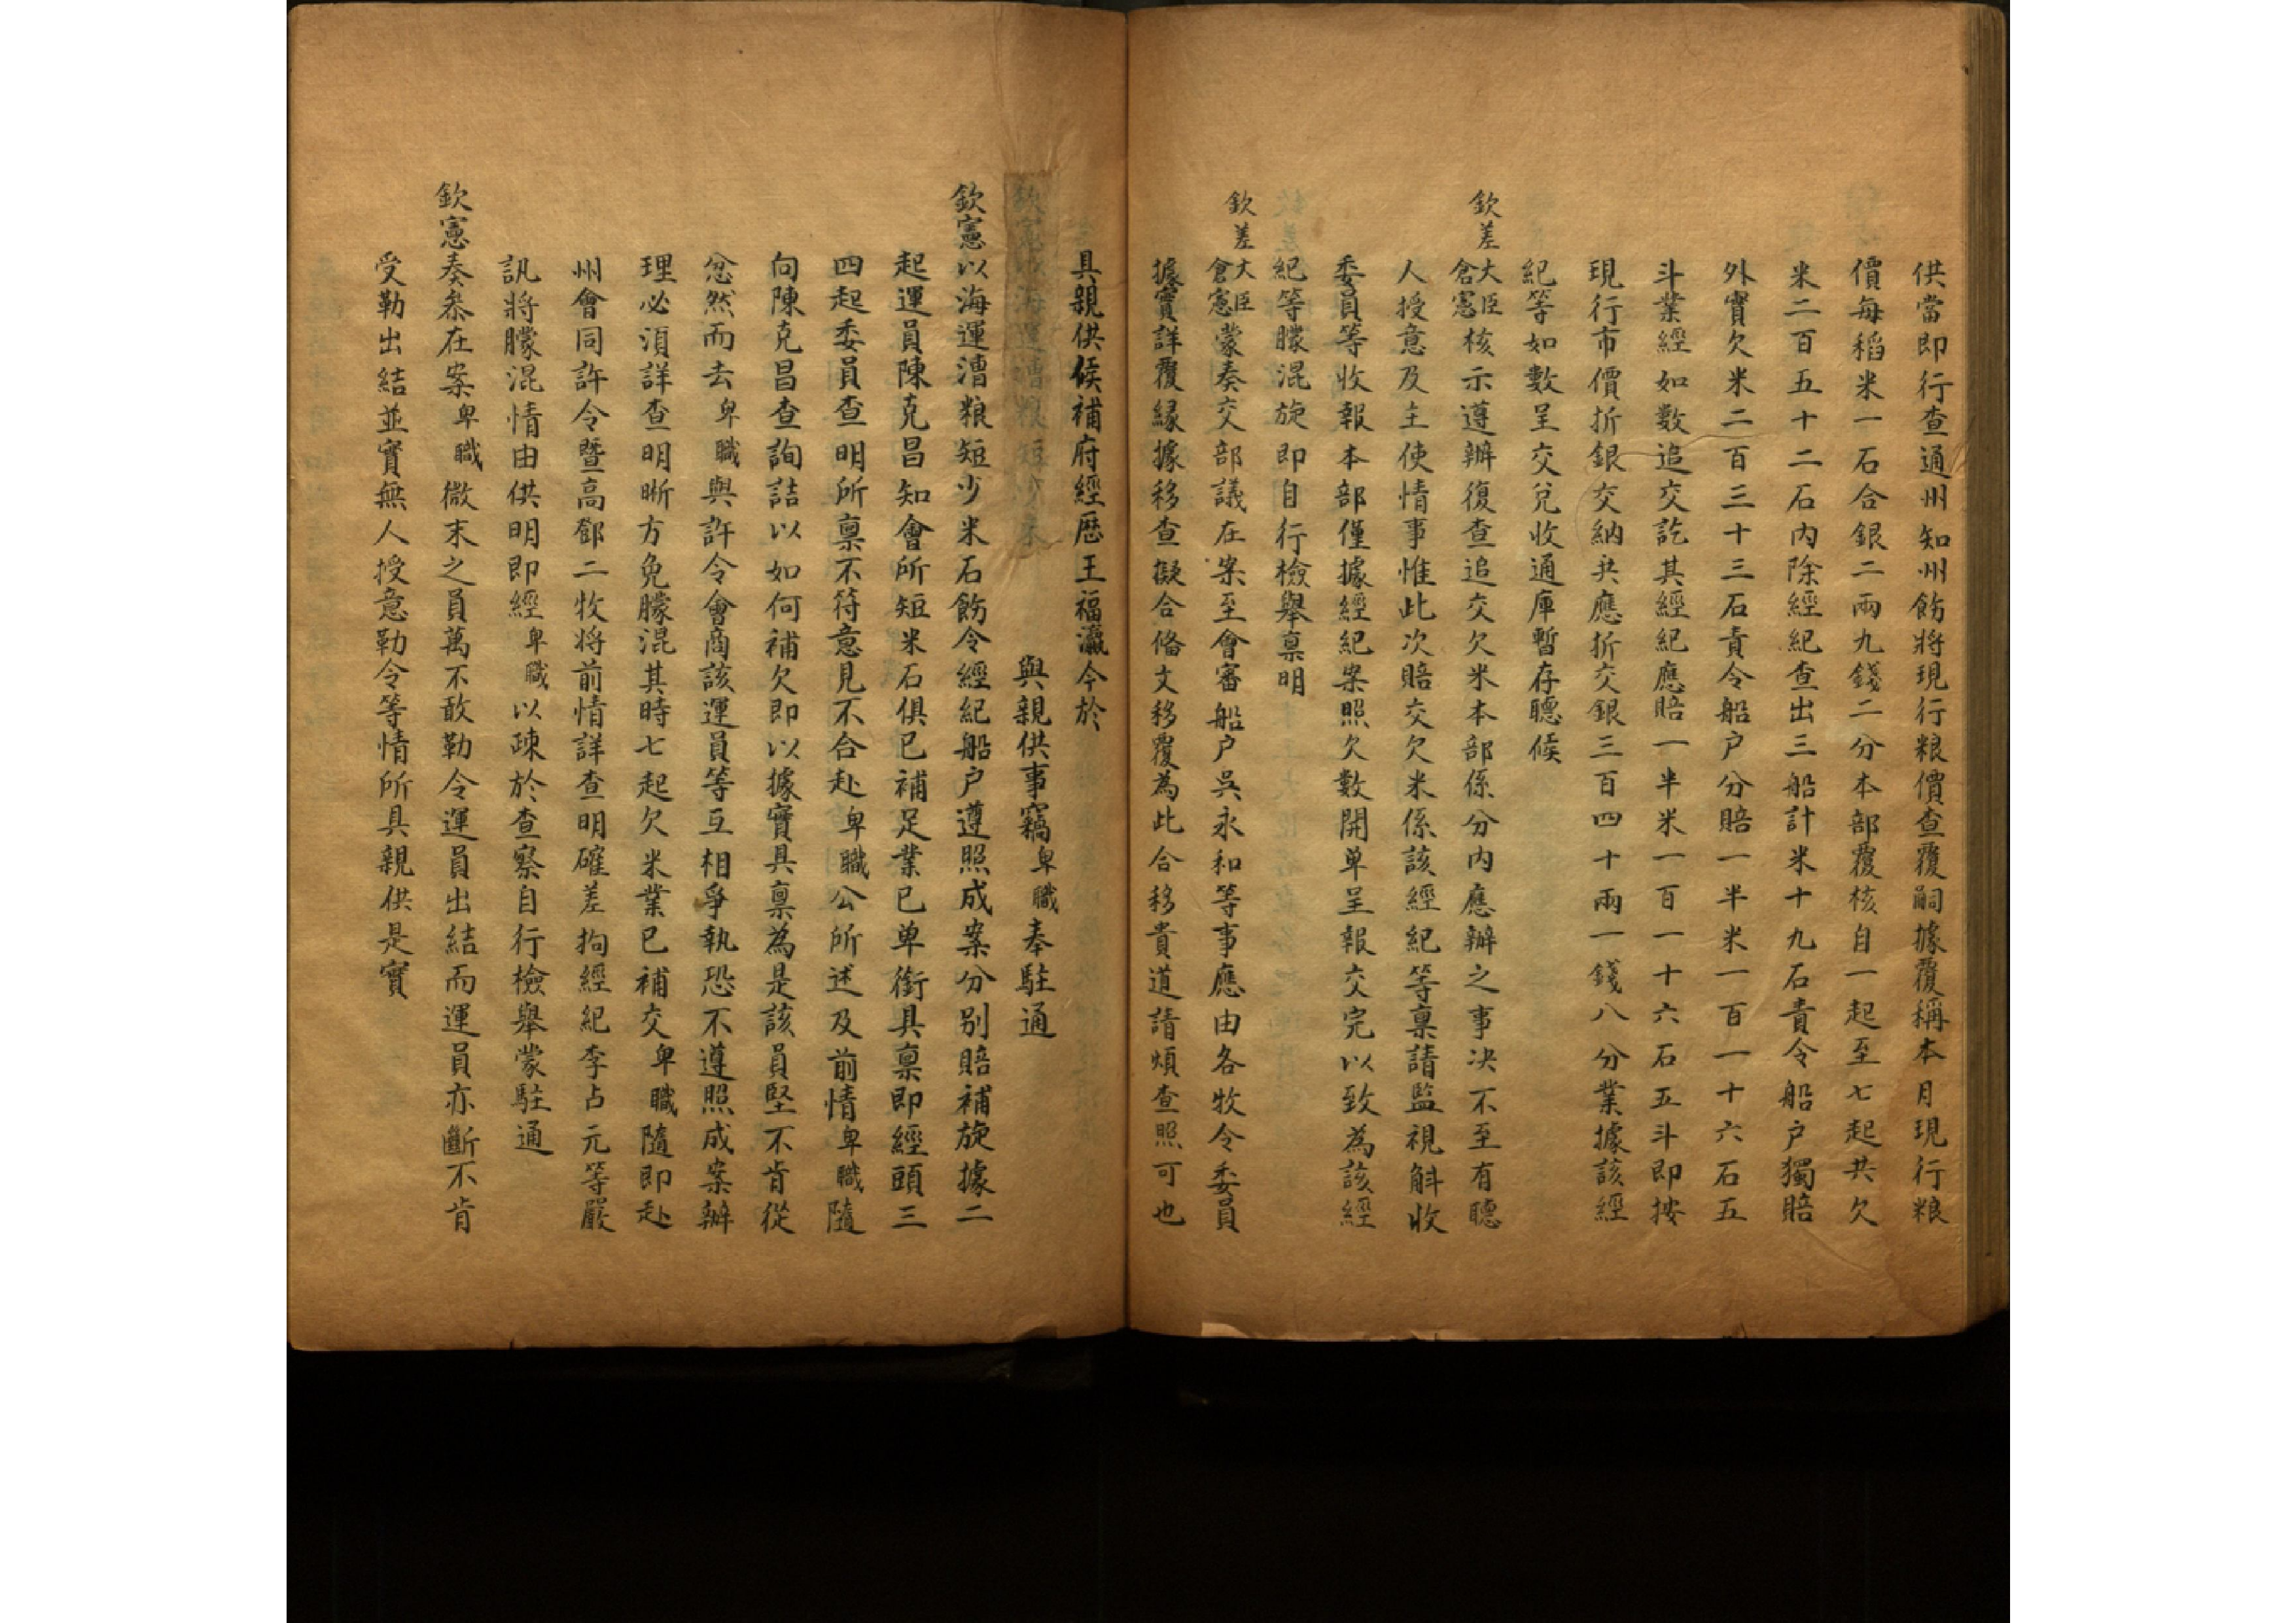 供當即行查通州知州飭將現行粮價查覆嗣據覆稱本月現行粮
價每稻米一石合銀二兩九錢二分本部覆核自一起至七起共欠
米二百五十二石內除經紀查出三船計米十九石責令船户獨賠
外實欠米二百三十三石責令船户分賠一半米一百一十六石五
斗業經如數追交訖其經紀應賠一半米一百一十六石五斗即按
現行市價折銀交納共應折交銀三百四十兩一錢八分業據該經
紀等如數呈交兌收通庫暫存聽候
欽差大臣倉憲核示遵辦復查追交欠米本部係分內應辦之事决不至有聽
人授意及主使情事惟此次賠交欠米係該經紀等稟請監視斛收
委員等收報本部僅據經紀案照欠數開单呈報交完以致為該經
紀等朦混旋即自行檢舉稟明
欽差大臣倉憲蒙奏交部議在案至會審船户吳永和等事應由各牧令委員
據實詳覆緣據移查擬合俻文移覆為此合移貴道請煩查照可也
具親供候補府經歷王福瀛今於
與親供事竊卑職奉駐通
欽憲以海運漕粮短少米石飭令經紀船户遵照成案分别賠補旋據二
起運員陳克昌知會所短米石俱已補足業已单銜具稟即經頭三
四起委員查明所稟不符意見不合赴卑職公所述及前情卑職隨
向陳克昌查詢詰以如何補欠即以據實具稟為是該員堅不肯從
忿然而去卑職與許令會商該運員等互相爭執恐不遵照成案辦
理必須詳查明晰方免朦混其時七起欠米業已補交卑職隨即赴
州會同許令暨高鄧二牧將前情詳查明確差拘經紀李占元等嚴
訊將朦混情由供明即經卑職以疎於查察自行檢舉蒙駐通
欽憲奏叅在案卑職微末之員萬不敢勒令運員出結而運員亦斷不肯
受勒出結並實無人授意勒令等情所具親供是實